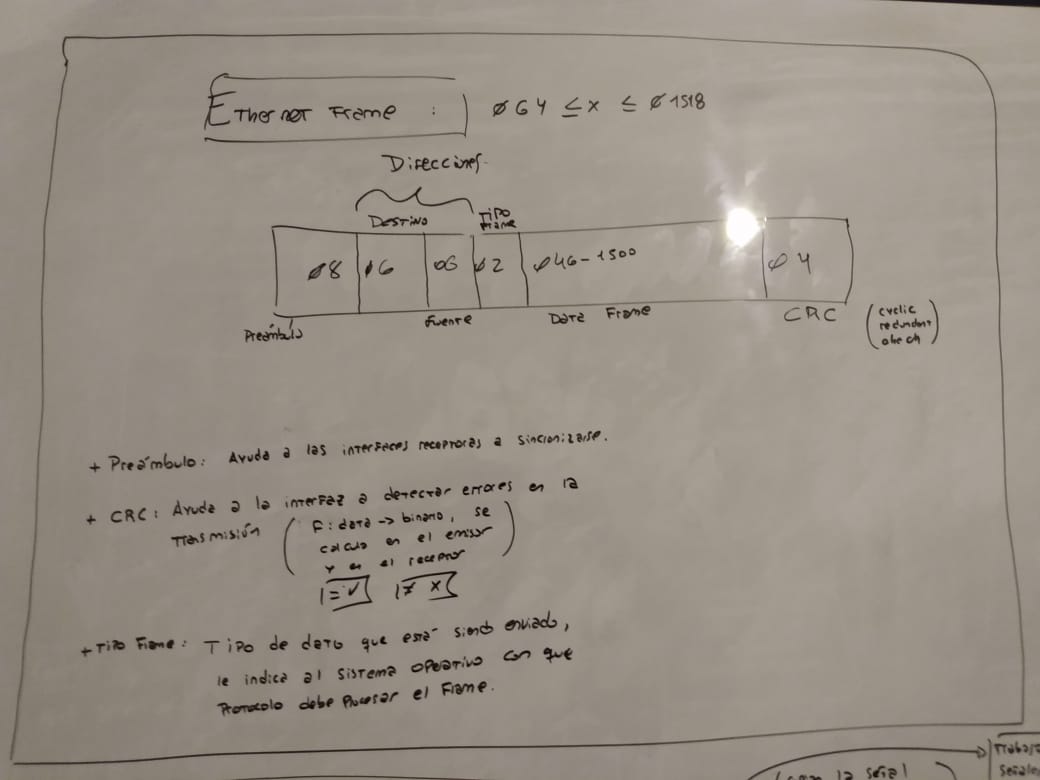 Ethernet Frame : ø64 ≤ x ≤ ø1518
Direcciones
Destino Tipo Frame
ø8 ø6 06 ø2 ø46-1500 ø4
Preámbulo Fuente Data Frame CRC (cyclic redundant check)
+ Preámbulo: Ayuda a las interfaces receptoras a sincronizarse.
+ CRC: Ayuda a la interfaz a detectar errores en la
transmisión (F: data -> binario, se
calcula en el emisor
y en el receptor)
= ✓ ≠ x
+ Tipo Frame: Tipo de dato que está siendo enviado,
le indica al sistema operativo con que
Protocolo debe Procesar el Frame.
la señal